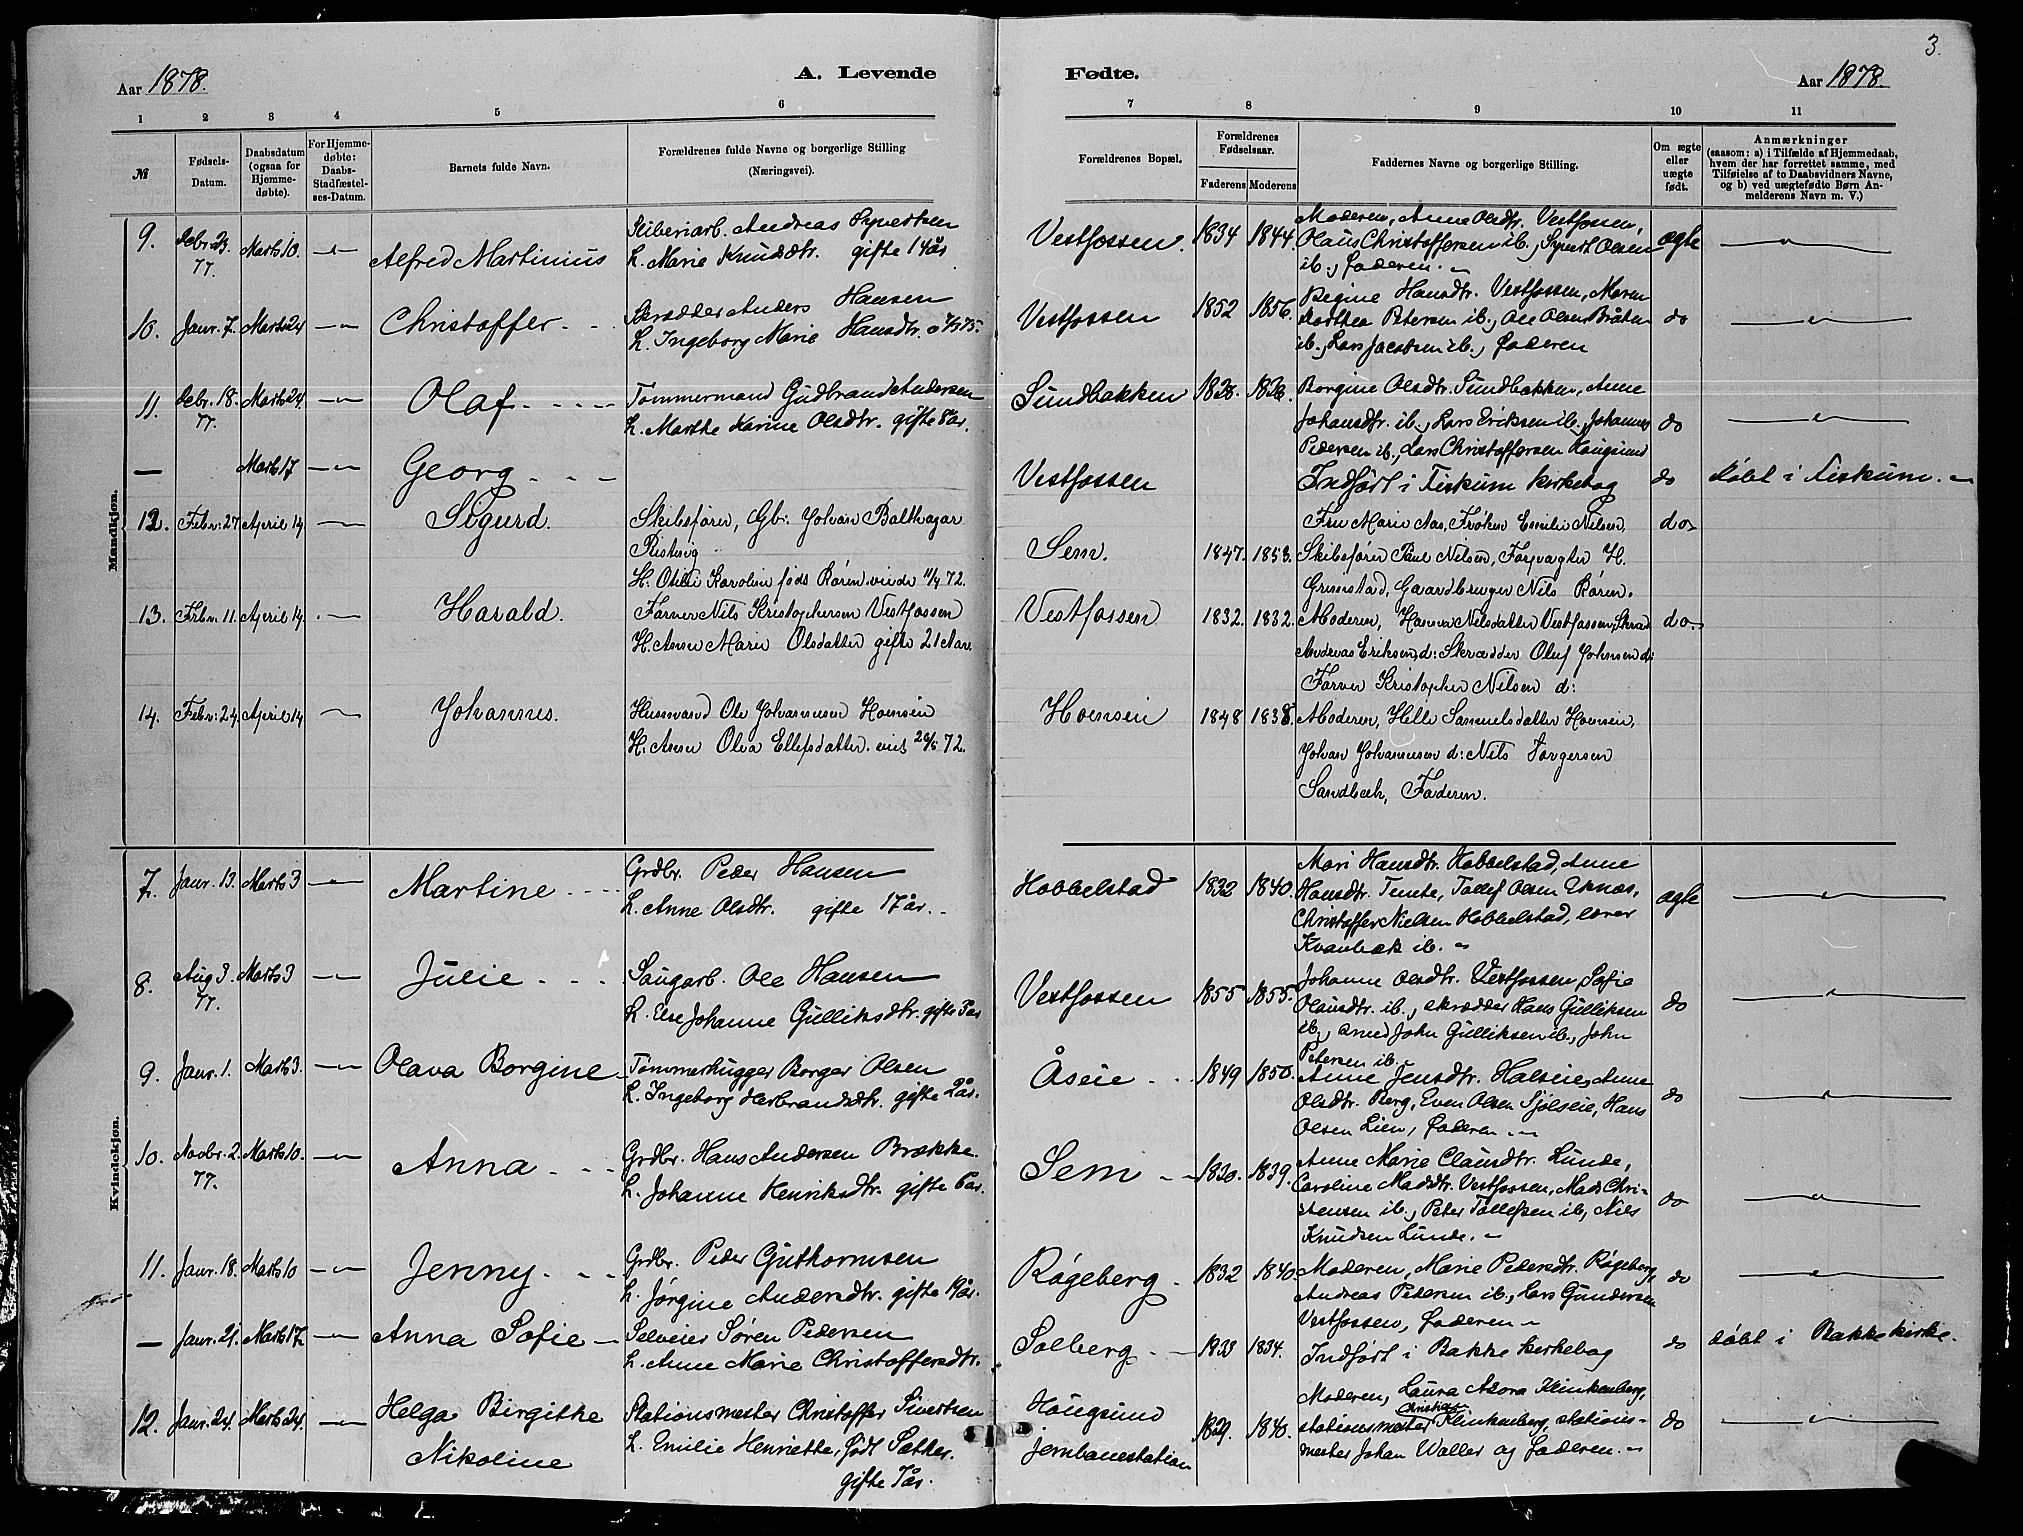 3.
Aar 1878. A. Levende Fødte. Aar 1878.
1 2 3 4 5 6 7 8 9 10 11
№ Fødsels-Datum. Daabsdatum (ogsaa for Hjemme-døbte). For Hjemme-døbte: Daabs-Stadfæstel-ses-Datum. Barnets fulde Navn. Forældrenes fulde Navne og borgerlige Stilling (Næringsvei). Forældrenes Bopæl. Forældrenes Fødselsaar. Faderens Moderens Faddernes Navne og borgerlige Stilling. Om ægte eller uægte født. Anmærkninger (saasom: a) i Tilfælde af Hjemmedaab, hvem der har forrettet samme, med Tilføielse af to Daabsvidners Navne, og b) ved uægtefødte Børn An-melderens Navn m. V.)
Mandkjøn.
9. Debr. 23. 77. Marts 10. Alfred Martinius
Andreas Syvertsen
h. Marie Knudsdtr. gifte 14 år
Vestfossen. 1834 1844
Moderen, Anne Olsdtr. Vestfossen,
Olaus Christoffersen ib., Syvert Olsen
ib., faderen.
ægte
10. Janr. 7. Marts 24 Christoffer
Skrædder Anders Hansen
h. Ingeborg Marie Hansdtr.
Vestfossen 1852 1856.
Regine Hansdtr. Vestfossen, Maren
Dorthea Petersen ib., Ole Olsen Bråten
ib., Lars Jacobsen ib., faderen
do
11. Debr. 18. 77. Marts 24. Olaf
Tømmermand Gudbrand Andersen
h. Marthe Karine Olsdtr. gifte 8 år.
Sundbakken 1828. 1828.
Borgine Olsdtr. Sundbakken, Anne
Johansdtr. ib., Lars Eriksen ib., Johannes
Pedersen ib., Lars Christoffersen Hougsund
do
— Marts 17 Georg
Vestfossen
Indført i Fiskum kirkebog
do døbt i Fiskum.
12. Febr: 27 April 14. Sigurd.
Skibsfører, Gb: Johan Balthazar
H. Otilie Karoline føds Røren viede 11/4 72.
Sem. 1847. 1853.
Fru Marie Aas, Frøken Emilie Nilsen,
Skibsfører Paul Nilsen, Forvagter H.
Grimstad, Gaardbruger Nils Røren.
do
13. Febr. 11. April 14. Harald.
Farver Nils Kristophersen Vestfossen
H. Anne Marie Olsdatter gifte 21 Aar.
Vestfossen 1832. 1832.
Moderen, Hanna Nilsdatter Vestfossen, Skræd
Andreas Eriksen d: Skrædder Oluf Johnsen d:
Farver Kristopher Nilsen d:
do
14. Febr: 24. April 14 Johannes.
Husmand Ole Johannesen Hoensein
H. Anne Olea Ellefsdatter. viet 26/5 72.
Hoensein 1848 1838.
Moderen, Helle Samuelsdatter Hoensein,
Johan Johannesen d: Nils Torgersen
Sandbæk, Faderen.
Kvindekjøn.
7. Janr. 13. Marts 3 Martine
Grdbr. Peder Hansen
h. Anne Olsdtr. gifte 17 år.
Hobbelstad 1832 1840.
Mari Hansdtr. Hobbelstad, Anne
Hansdtr. Temte, Tollef Olsen Eknes,
Christoffer Nielsen Hobbelstad, lærer
Kvanbæk ib.
ægte
8. Aug. 3. 77. Marts 3 Julie
Saugarb. Ole Hansen
h. Else Johanne Gulliksdtr. gifte
Vestfossen 1855 1855.
Johanne Olsdtr. Vestfossen, Sofie
Olausdtr. ib., skrædder Hans Gulliksen
ib., smed John Gulliksen ib., John
Petersen ib.
do
9. Janr. 1. Marts 3. Olava Borgine
Tømmerhugger Borger Olsen
h. Ingeborg Herbrandsdtr. gifte 2 år.
Åseie 1849 1850.
Anne Jensdtr. Halseie, Anne
Olsdtr. Berg, Even Olsen Sjølseie, Hans
Olsen Lien, faderen
do
10. Novbr. 2. 77. Marts 10. Anna
Grdbr. Hans Andersen Brække
h. Johanne Henriksdtr. gifte 6 år.
Sem 1830. 1839.
Anne Marie Clausdtr. Lunde,
Caroline Madsdtr. Vestfossen, Mads Chri-
stensen ib., Peter Tollefsen ib., Niels
Knudsen Lunde.
do
11. Janr. 18. Marts 10 Jenny
Grdbr. Peder Guthormsen
h. Jørgine Andersdtr. gifte
Røgeberg 1832 1840
Moderen, Marie Pedersdtr. Røgeberg,
Andreas Petersen ib., Lars Gundersen
Vestfossen, faderen
do
— Janr. 21. Marts 17. Anna Sofie
Selveier Søren Pedersen
h. Anne Marie Christoffersdtr.
Solberg 1833 1834.
Indført i Bakke kirkebog
do døbt i Bakke kirke.
12. Janr. 24. Marts 24. Helga Birgitke
Nikoline
Stationsmester Christoffer Sivertsen
h. Emilie Henriette, født Sætker.
gifte 7 år.
Hougsund
jernbanestation
1829. 1840.
Moderen, Laura Klinkenberg,
stationsmester Christian Klinkenberg, stations-
mester Johan Waller og faderen.
do